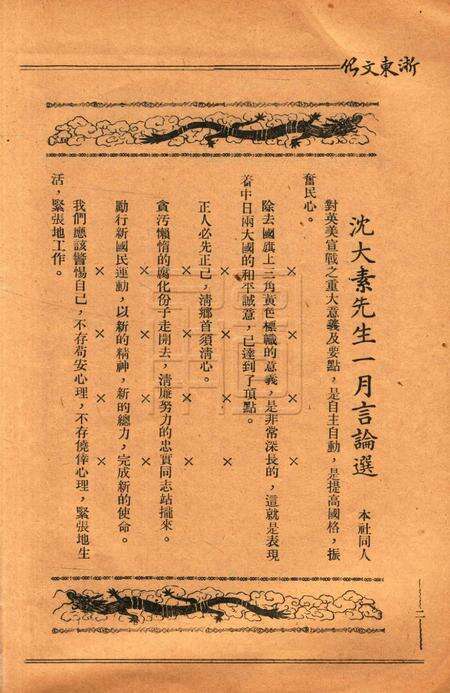 浙東文化
沈大素先生一月言論選
本社同人
對英美宣戰之重大意義及要點，是自主自動，是提高國格，振
奮民心。
× × × ×
除去國旗上三角黃色標識的意義，是非常深長的，這就是表現
着中日兩大國的和平誠意，已達到了頂點。
× × × ×
正人必先正己，淸鄉首須淸心。
× × × ×
貪汚懶惰的腐化份子走開去，淸廉努力的忠實同志站攏來。
× × × ×
勵行新國民運動，以新的精神，新的總力，完成新的使命。
× × × ×
我們應該警惕自己，不存苟安心理，不存僥倖心理，緊張地生
活，緊張地工作。
二